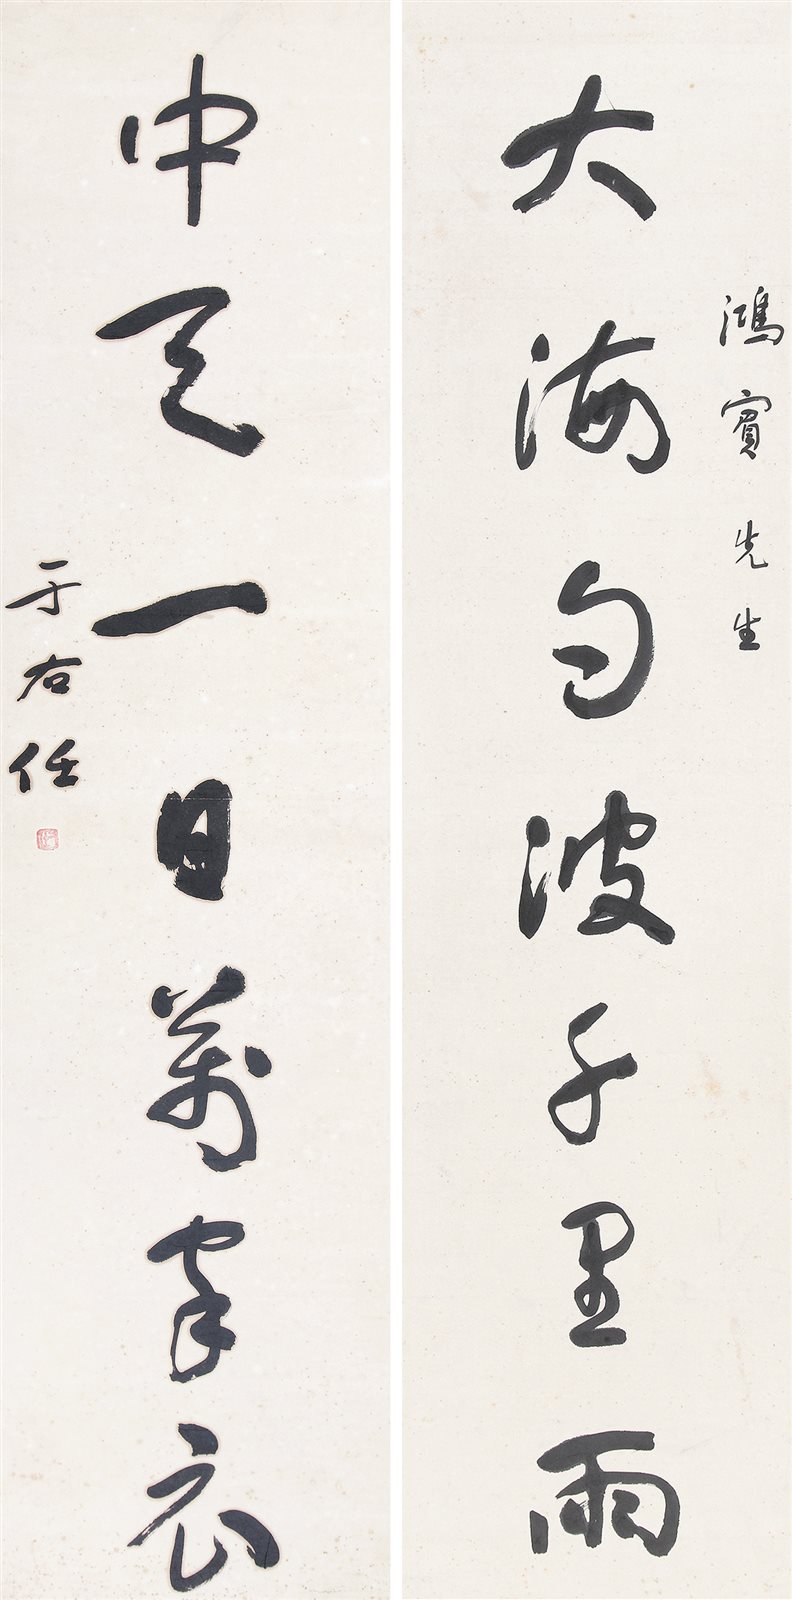 鴻賓先生
大海勺波千里雨
中天一日萬家衣
于右任